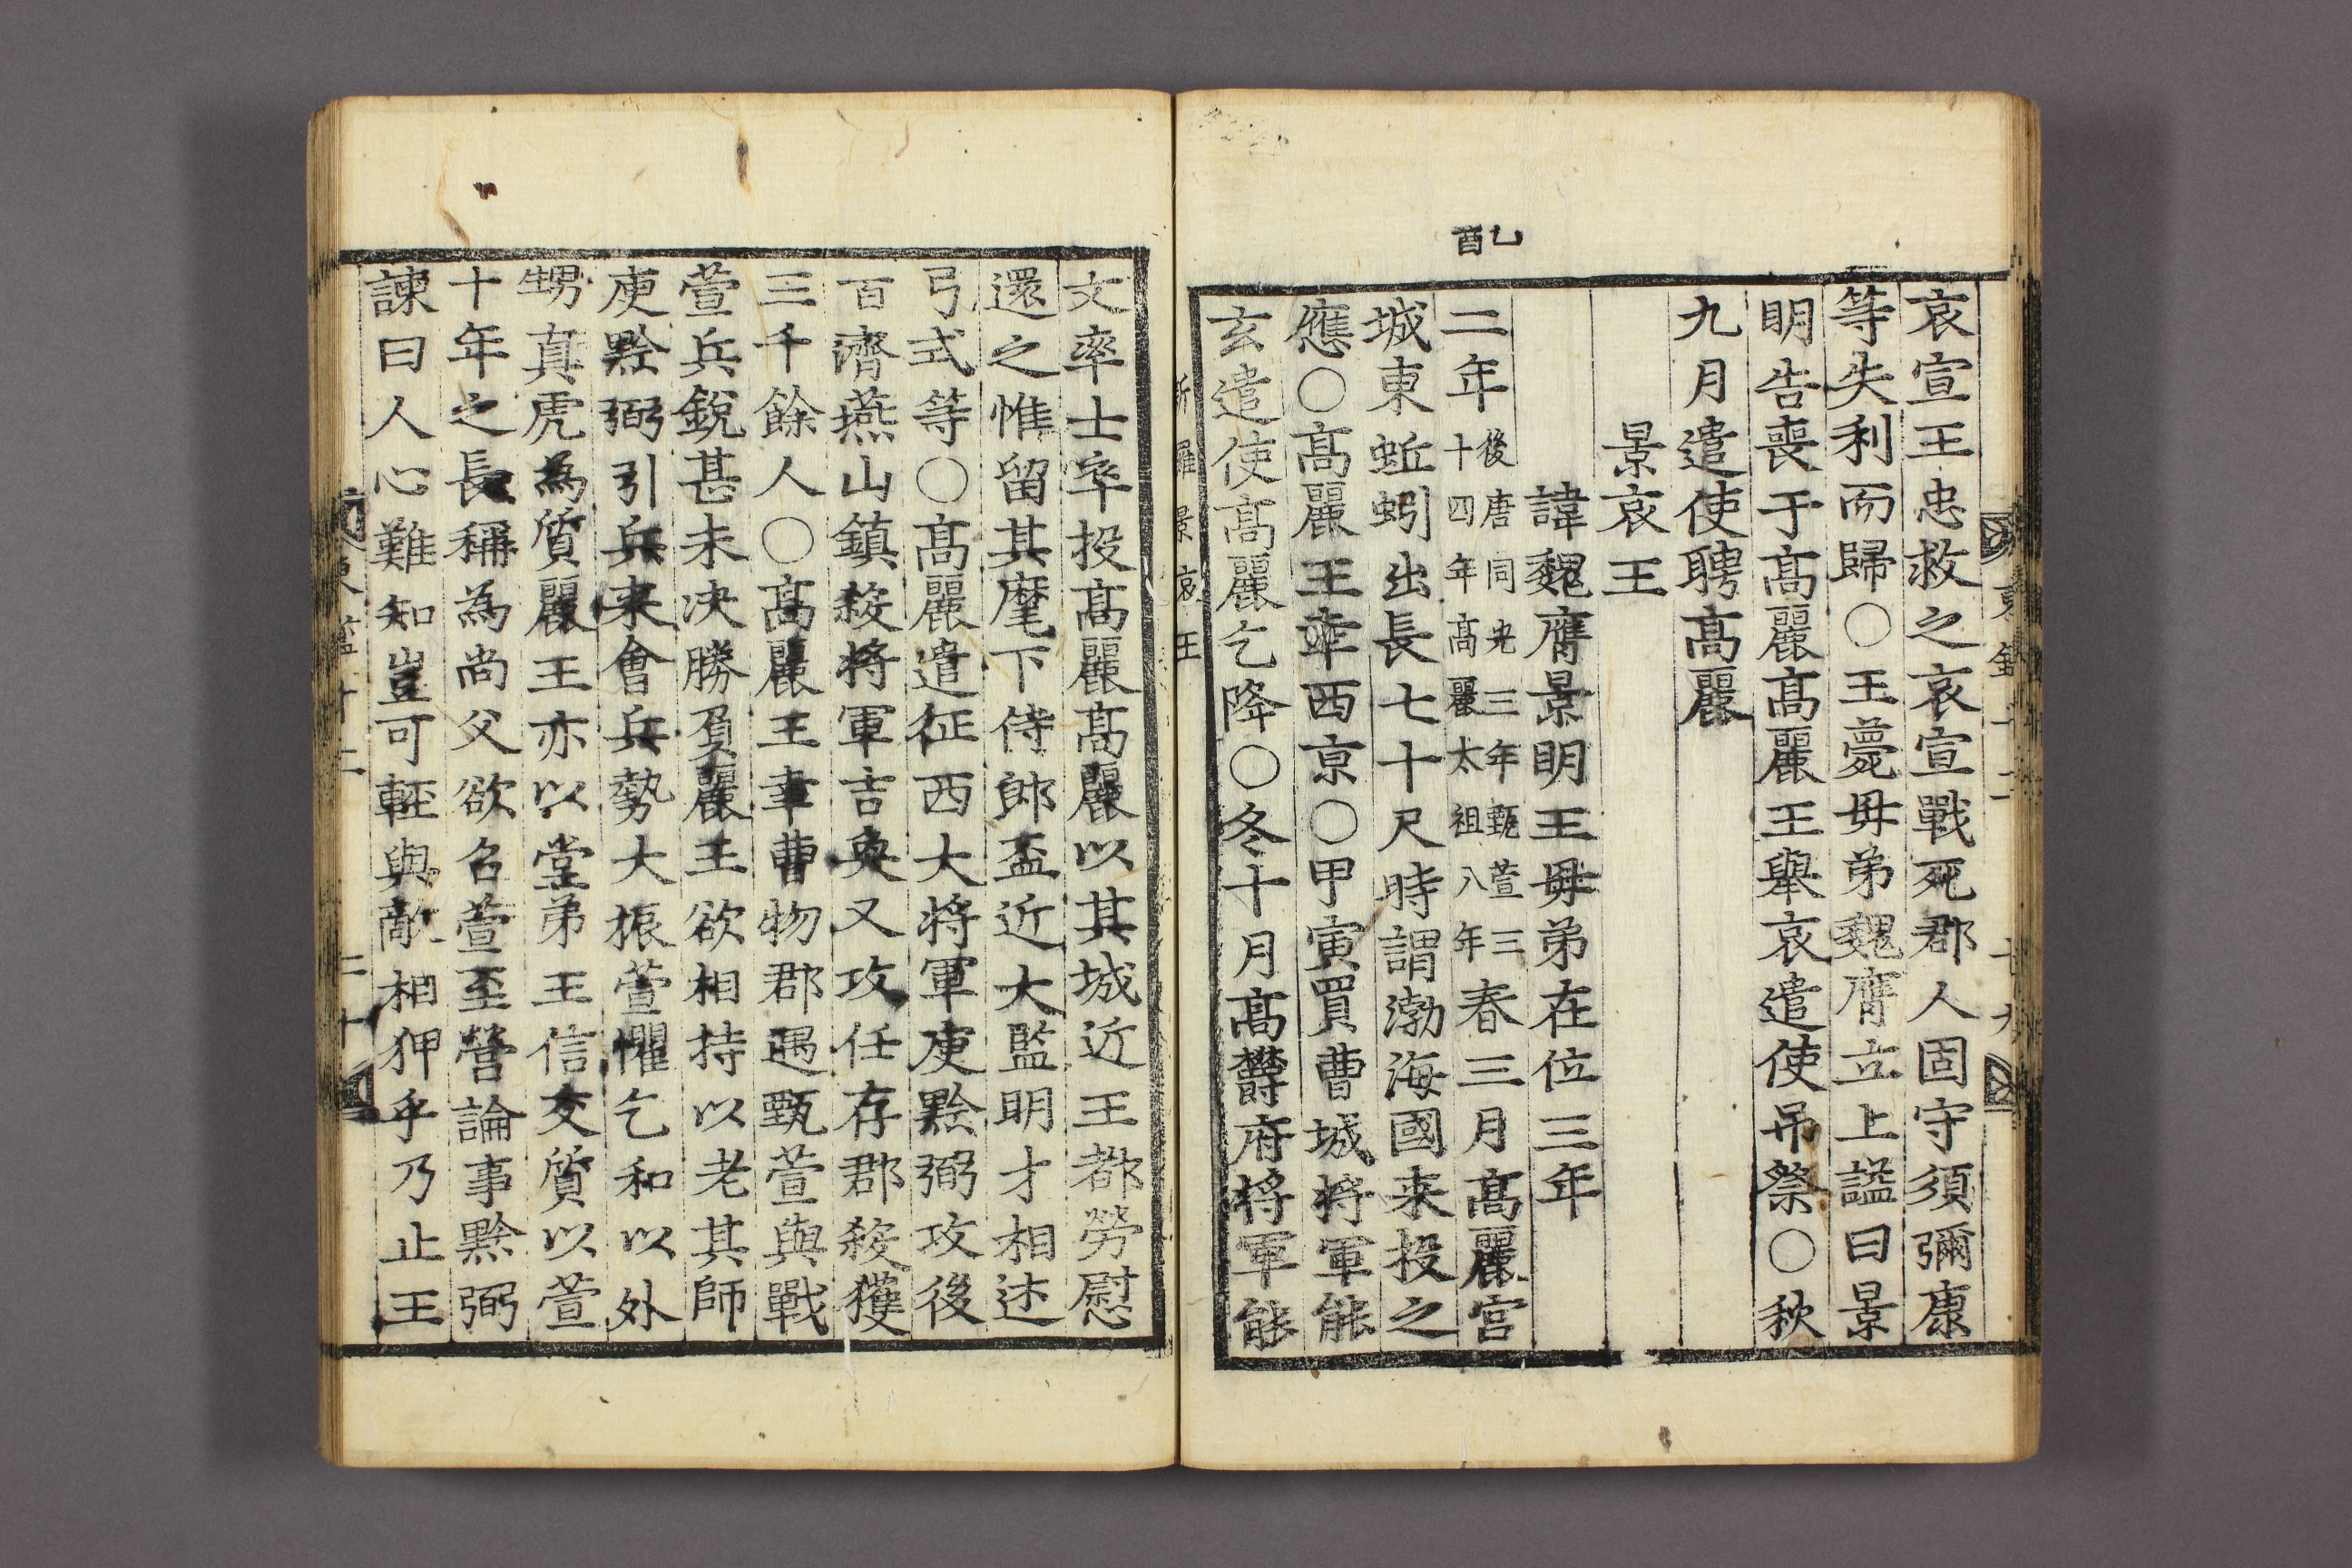 哀宣王忠救之哀宣戰死郡人固守須彌康
等失利而歸〇王薨毋弟魏膺立上謚曰景
明告喪于高麗高麗王舉哀遣使吊祭〇秋
九月遣使聘高麗
景哀王
諱魏膺景明王毋弟在位三年
乙酉
二年後唐同光三年甄萱三十四年高麗太祖八年春三月高麗宮
城東蚯蚓出長七十尺時謂渤海國来投之
應〇高麗王幸西京〇甲寅買曹城将軍能
玄遣使高麗乞降〇冬十月高欝府将軍能
新羅景哀王
文率士卒投高麗高麗以其城近王都勞慰
還之惟留其麾下侍郎盃近大監明才相述
弓式等〇高麗遣征西大将軍庾黔弼攻後
百濟燕山鎮殺将軍吉奐又攻任存郡殺獲
三千餘人〇高麗王幸曹物郡遇甄萱與戰
萱兵銳甚未决勝負麗王欲相持以老其師
庾黔弼引兵来會兵勢大振萱懼乞和以外
甥真虎為質麗王亦以堂弟王信交質以萱
十年之長稱為尚父欲召萱至營論事黔弼
諫曰人心難知豈可輕與敵相狎乎乃止王
東鑑十二 二十